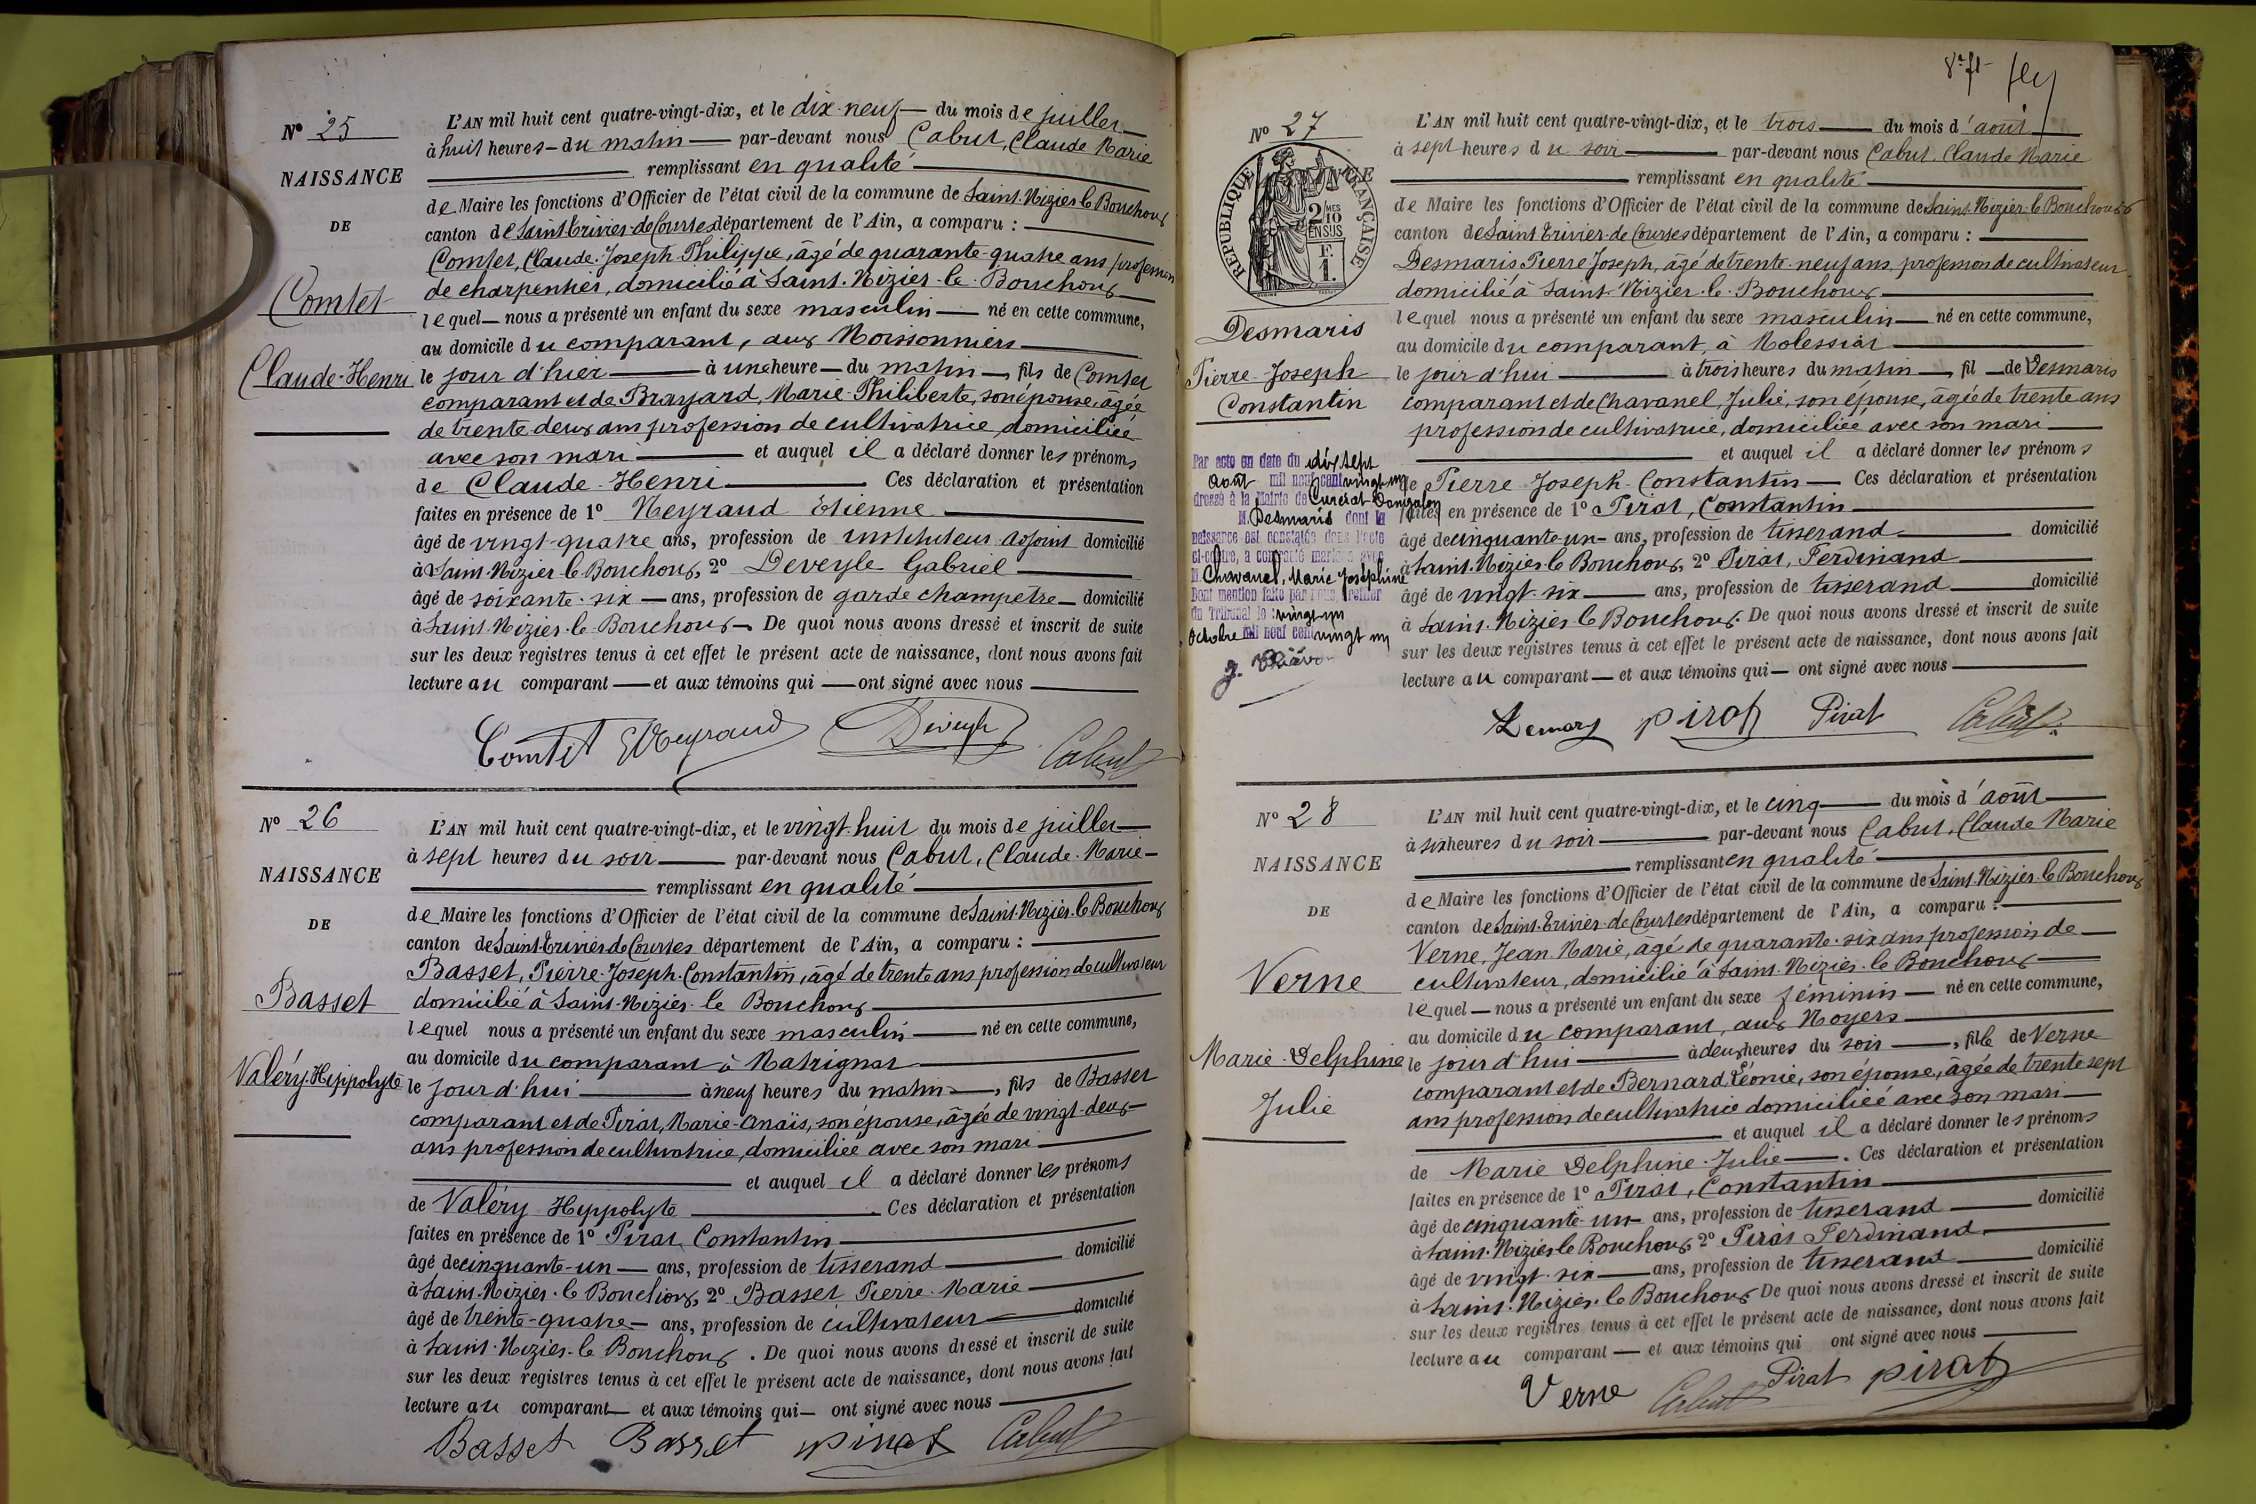 Nº 25
NAISSANCE
DE
Comtet
Claude-Henri
L'AN mil huit cent quatre-vingt-dix, et le dix-neuf du mois de juillet
à huit heures du matin par-devant nous Cabut, Claude Marie
remplissant en qualité
de Maire les fonctions d'Officier de l'état civil de la commune de Saint-Nizier-le Bouchoux
canton de Saint-Trivier-de-Courtes département de l'Ain, a comparu :
Comtet, Claude-Joseph-Philippe, âgé de quarante-quatre ans, profession
de charpentier, domicilié à Saint-Nizier-le-Bouchoux
lequel nous a présenté un enfant du sexe masculin né en cette commune,
au domicile du comparant, aux Moissonniers
le jour d'hier à une heure du matin, fils de Comtet
comparant et de Brayard, Marie-Philiberte, son épouse, âgée
de trente deux ans profession de cultivatrice, domiciliée
avec son mari et auquel il a déclaré donner les prénoms
de Claude-Henri Ces déclaration et présentation
faites en présence de 1º Neyraud Etienne
âgé de vingt-quatre ans, profession de instituteur adjoint domicilié
à Saint-Nizier-le Bouchoux, 2º Deveyle Gabriel
âgé de soixante-six ans, profession de garde champetre domicilié
à Saint-Nizier-le-Bouchoux De quoi nous avons dressé et inscrit de suite
sur les deux registres tenus à cet effet le présent acte de naissance, dont nous avons fait
lecture au comparant et aux témoins qui ont signé avec nous
Comtet Neyraud Deveyle Cabut
Nº 26
NAISSANCE
DE
Basset
Valéry-Hippolyte
L'AN mil huit cent quatre-vingt-dix, et le vingt-huit du mois de juillet
à sept heures du soir par-devant nous Cabut, Claude-Marie
remplissant en qualité
de Maire les fonctions d'Officier de l'état civil de la commune de Saint-Nizier-le Bouchoux
canton de Saint-Trivier de Courtes département de l'Ain, a comparu :
Basset, Pierre-Joseph-Constantin, âgé de trente ans profession de cultivateur
domicilié à Saint-Nizier-le Bouchoux
lequel nous a présenté un enfant du sexe masculin né en cette commune,
au domicile du comparant à Matrignat
le jour d'hui à neuf heures du matin, fils de Basset
comparant et de Pirat, Marie-Anaïs, son épouse, âgée de vingt-deux
ans profession de cultivatrice, domiciliée avec son mari
et auquel il a déclaré donner les prénoms
de Valéry Hippolyte Ces déclaration et présentation
faites en présence de 1º Pirat, Constantin
âgé de cinquante-un ans, profession de tisserand domicilié
à Saint-Nizier-le Bouchoux, 2º Basset Pierre-Marie
âgé de trente-quatre ans, profession de cultivateur domicilié
à Saint-Nizier-le Bouchoux. De quoi nous avons dressé et inscrit de suite
sur les deux registres tenus à cet effet le présent acte de naissance, dont nous avons fait
lecture au comparant et aux témoins qui ont signé avec nous
Basset Basset pirat Cabut
Nº 27
RÉPUBLIQUE FRANÇAISE
2 MES
10
EN SUS
F.
1.
Desmaris
Pierre-Joseph
Constantin
Par acte en date du dix sept
août mil neuf cent vingt un
dressé à la Mairie de Curciat-Dongalon
M. Desmaris dont la
naissance est constatée dans l'acte
ci-contre, a contracté mariage avec
M. Chavanel, Marie Joséphine
Dont mention faite par nous, greffier
du Tribunal le vingt-un
Octobre mil neuf cent vingt un
L'AN mil huit cent quatre-vingt-dix, et le trois du mois d'août
à sept heures du soir par-devant nous Cabut, Claude Marie
remplissant en qualité
de Maire les fonctions d'Officier de l'état civil de la commune de Saint-Nizier-le Bouchoux
canton de Saint-Trivier-de Courtes département de l'Ain, a comparu :
Desmaris Pierre Joseph, âgé de trente-neuf ans, profession de cultivateur
domicilié à Saint-Nizier-le-Bouchoux
lequel nous a présenté un enfant du sexe masculin né en cette commune,
au domicile du comparant, à Molessiat
le jour d'hui à trois heures du matin, fil de Desmaris
comparant et de Chavanel, Julie, son épouse, âgée de trente ans
profession de cultivatrice, domiciliée avec son mari
et auquel il a déclaré donner les prénoms
de Pierre Joseph-Constantin Ces déclaration et présentation
faites en présence de 1º Pirat, Constantin
âgé de cinquante-un ans, profession de tisserand domicilié
à Saint-Nizier-le Bouchoux, 2º Pirat, Ferdinand
âgé de vingt-six ans, profession de tisserand domicilié
à Saint-Nizier le Bouchoux. De quoi nous avons dressé et inscrit de suite
sur les deux registres tenus à cet effet le présent acte de naissance, dont nous avons fait
lecture au comparant et aux témoins qui ont signé avec nous
pirat Pirat Cabut
Nº 28
NAISSANCE
DE
Verne
Marie-Delphine
Julie
L'AN mil huit cent quatre-vingt-dix, et le cinq du mois d'août
à six heures du soir par-devant nous Cabut, Claude Marie
remplissant en qualité
de Maire les fonctions d'Officier de l'état civil de la commune de Saint-Nizier-le Bouchoux
canton de Saint-Trivier-de-Courtes département de l'Ain, a comparu :
Verne, Jean Marie, âgé de quarante-six ans profession de
cultivateur, domicilié à Saint-Nizier-le Bouchoux
lequel nous a présenté un enfant du sexe féminin né en cette commune,
au domicile du comparant, aux Noyers
le jour d'hui à deux heures du soir, fille de Verne
comparant et de Bernard, Léonie, son épouse, âgée de trente sept
ans profession de cultivatrice domiciliée avec son mari
et auquel il a déclaré donner les prénoms
de Marie Delphine-Julie. Ces déclaration et présentation
faites en présence de 1º Pirat, Constantin
âgé de cinquante-un ans, profession de tisserand domicilié
à Saint-Nizier-le Bouchoux, 2º Pirat Ferdinand
âgé de vingt-six ans, profession de tisserand domicilié
à Saint-Nizier-le Bouchoux De quoi nous avons dressé et inscrit de suite
sur les deux registres tenus à cet effet le présent acte de naissance, dont nous avons fait
lecture au comparant et aux témoins qui ont signé avec nous
Verne Cabut Pirat pirat